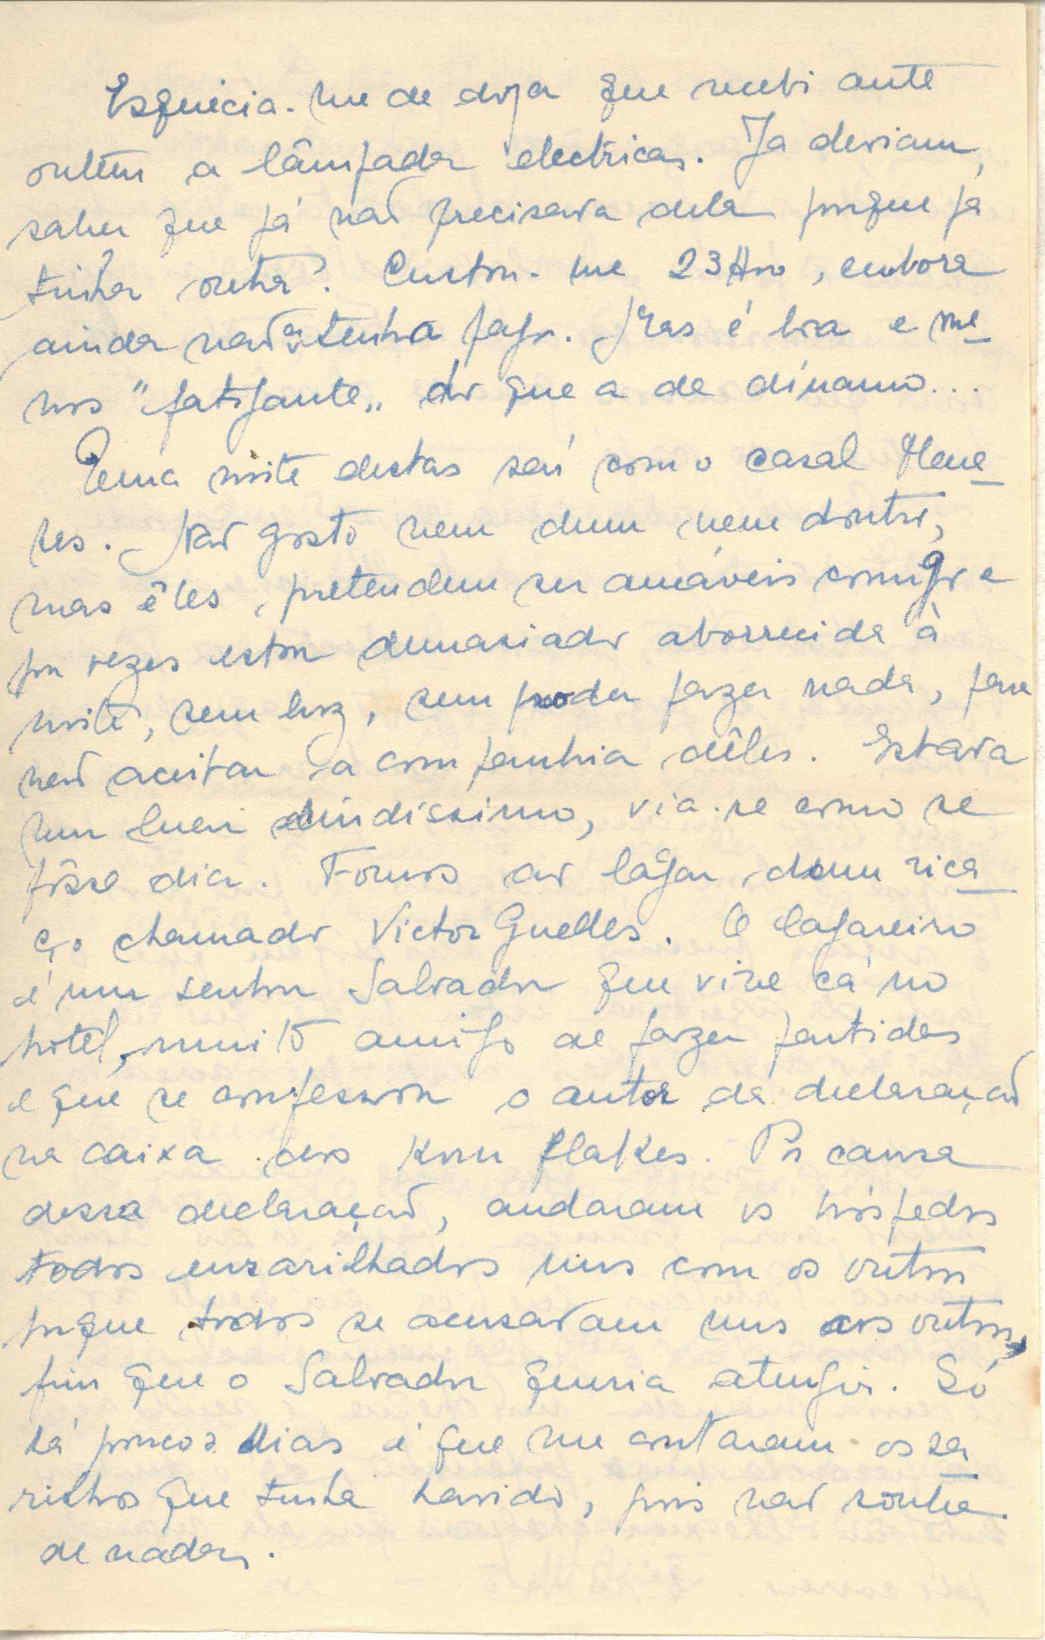 Esquècia-me de dizer que recebi ante
ontem a lâmpada electrica. Ja deviam
saber que já não precisava dela porque já
tinha outra? Custou-me 23$00, embora
ainda não a tenha pago. Mas é boa e me
nos "fatigante" do que a de dínamo...
Uma noite destas saí com o casal Mene
ses. Não gosto nem dum nem doutro,
mas êles pretendem ser amáveis comigo e
por vezes estou demasiado aborrecida à
noite, sem luz, sem poder fazer nada, para
não aceitar a companhia dêles. Estava
um luar lindíssimo, via-se como se
fôsse dia. Fomos ao lagar dum rica
ço chamado Victor Guedes. O lagareiro
é um senhor Salvador que vive cá no
hotel, muito amigo de fazer partidas
e que se confessou o autor da declaração
na caixa dos Korn flakes. Por causa
dessa declaração, andaram os hóspedes
todos ensarilhados uns com os outros
porque todos se acusavam uns aos outros,
fim que o Salvador queria atingir. Só
há poucos dias é que me contaram os sa
rilhos que tinha havido, pois não soube
de nada.